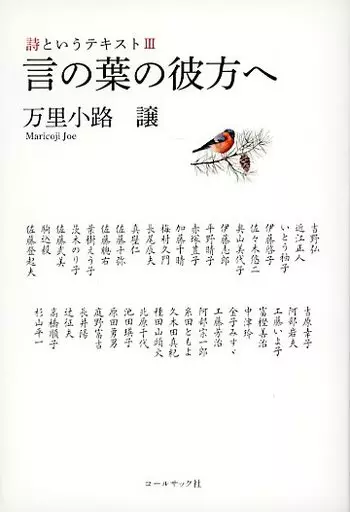 詩というテキストⅢ
言の葉の彼方へ
万里小路 譲
Maricoji Joe
吉野弘
近江正人
いとう柚子
伊藤啓子
佐々木悠二
奥山美代子
伊藤志郎
平野晴子
赤塚豊子
加藤千晴
梅村久門
長尾辰夫
真壁仁
佐藤十弥
佐藤總右
葉樹えう子
茨木のり子
佐藤武美
駒込毅
佐藤登起夫
吉原幸子
阿部岩夫
工藤いよ子
富樫善治
中津玲
金子みすゞ
工藤芳治
阿部宗一郎
糸田ともよ
久木田真紀
種田山頭火
比原千代
池田瑛子
原田勇男
庭野富吉
長井陽
辻征夫
高橋順子
杉山平一
コールサック社